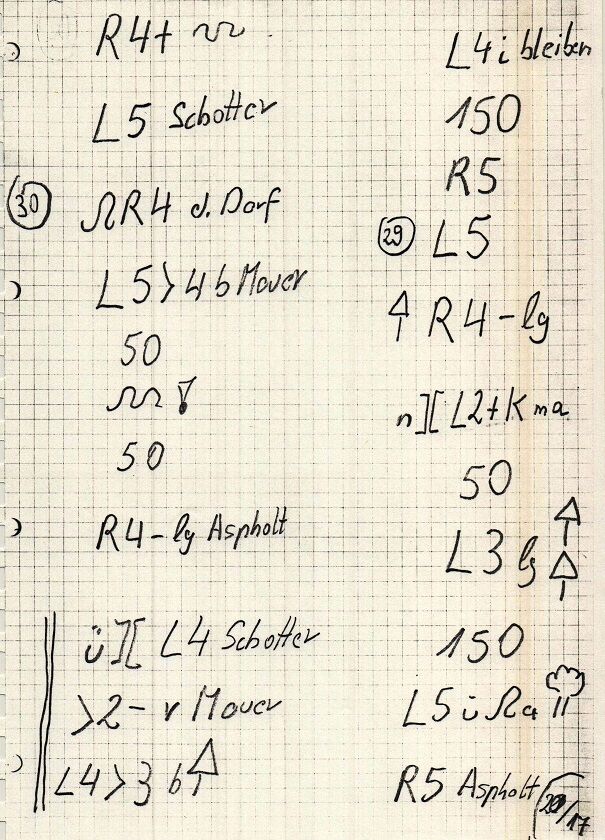 R4+
L5 Schotter
30
R4 d. Dorf
L5>4 b Mauer
50
!
50
R4- lg Asphalt
ü][ L4 Schotter
>2- v Mauer
L4>3 b
L4 i bleiben
150
R5
29 L5
R4- lg
n][ L2+ K ma
50
L3 lg
150
L5 ü a
R5 Asphalt
/17